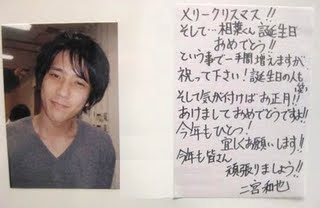 メリークリスマス!!
そして…相葉くん誕生日
おめでとう!!
という事で一手間増えますが
祝って下さい!誕生日の人も(笑)
そして気が付けばお正月!!
あけましておめでとうですよ!!
今年もひとつ!
宜しくお願いします!!
今年も皆さん
頑張りましょう!!
二宮和也